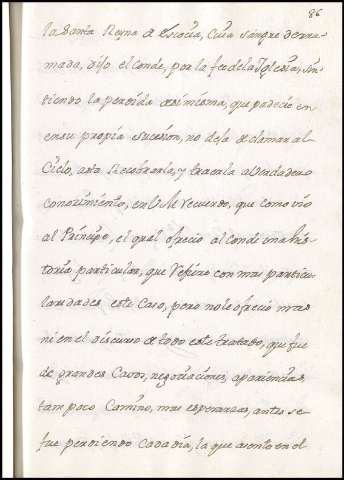 86
la Santa Reyna de Escocia, Cuia sangre derra-
mada, dijo el Conde, por la fee de la Iglesia, sin-
tiendo la perdida de si misma, que padecio en
en su propia sucesion, no deja de clamar al
Cielo, asta Recobrarla, y traerla al verdadero
Conocimiento, en la M Recuerdo, que como vio
al Principe, el qual ofrecio al Conde una his-
toria particular, que Refiere con mas particu-
laridades este Caso, pero no le ofrecio mas
ni en el discurso de todo este tratado, que fue
de grandes Casos, negociaciones, apariencias,
tampoco Camino, mas esperanzas, antes se
fue perdiendo Cada dia, la que asento en el